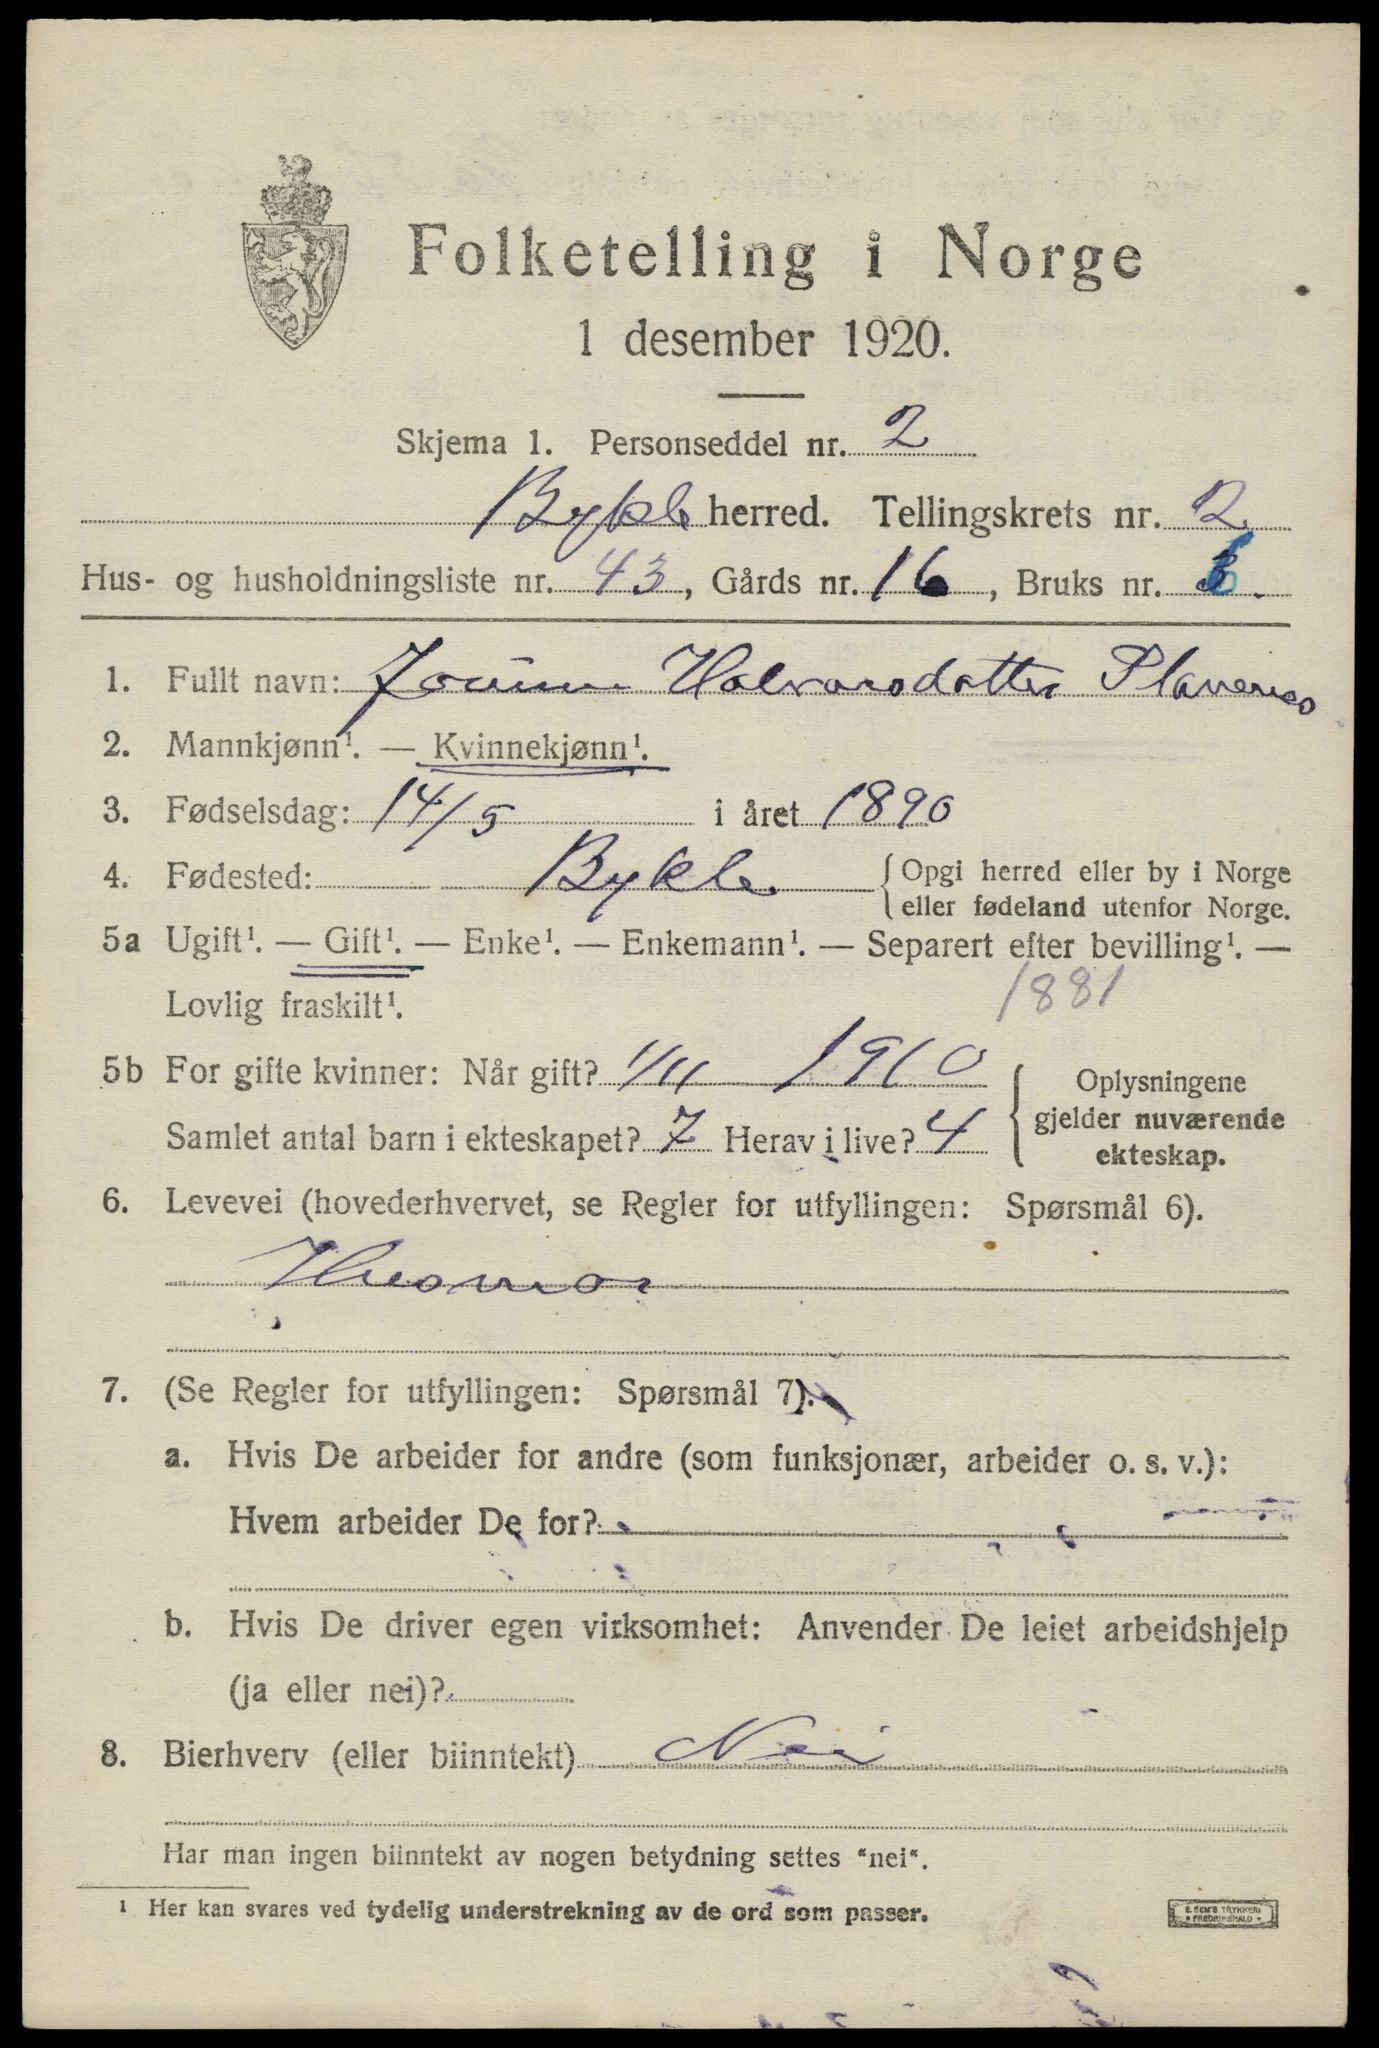 Folketelling i Norge
1 desember 1920.
Skjema 1. Personseddel nr. 2
Bykle herred. Tellingskrets nr. 2
Hus- og husholdningsliste nr. 43, Gårds nr. 16, Bruks nr.
1. Fullt navn: Halvorsdatter
2. Mannkjønn¹. — Kvinnekjønn¹.
3. Fødselsdag: 14/5 i året 1890
4. Fødested: Bykle { Opgi herred eller by i Norge
eller fødeland utenfor Norge.
5a Ugift¹. — Gift¹. — Enke¹. — Enkemann¹. — Separert efter bevilling¹. —
Lovlig fraskilt¹. 1881
5b For gifte kvinner: Når gift? 1/11 1910
Samlet antal barn i ekteskapet? 7 Herav i live? 4
{ Oplysningene
gjelder nuværende
ekteskap.
6. Levevei (hovederhvervet, se Regler for utfyllingen: Spørsmål 6).
Husmor
7. (Se Regler for utfyllingen: Spørsmål 7).
a. Hvis De arbeider for andre (som funksjonær, arbeider o. s. v.):
Hvem arbeider De for?
b. Hvis De driver egen virksomhet: Anvender De leiet arbeidshjelp
(ja eller nei)?
8. Bierhverv (eller biinntekt) Nei
Har man ingen biinntekt av nogen betydning settes "nei".
¹ Her kan svares ved tydelig understrekning av de ord som passer.
E. SEM'S TRYKKERI
* FREDRIKSHALD *